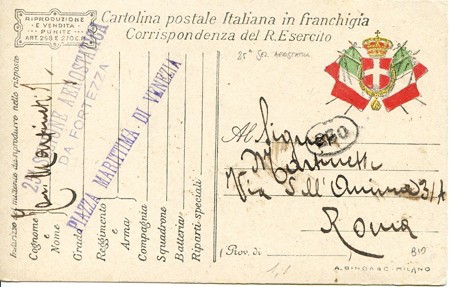 RIPRODUZIONE
E VENDITA
PUNITE
ART. 268 E 270 C.P.
Cartolina postale Italiana in franchigia
Corrispondenza del R. Esercito
25ª SEZ. AEROSTATICA
SEZIONE AEROSTATICA
DA FORTEZZA
PIAZZA MARITTIMA DI VENEZIA
Indirizzo del mittente da riprodurre nella risposta
Cognome
e
Nome
Grado
Reggimento
e
Arma
Compagnia
Squadrone
Batteria
Riparti speciali
Al Signor
Martinetti
Via dell'Anima 31A
Roma
(Prov. di )
A. GINDASC-MILANO